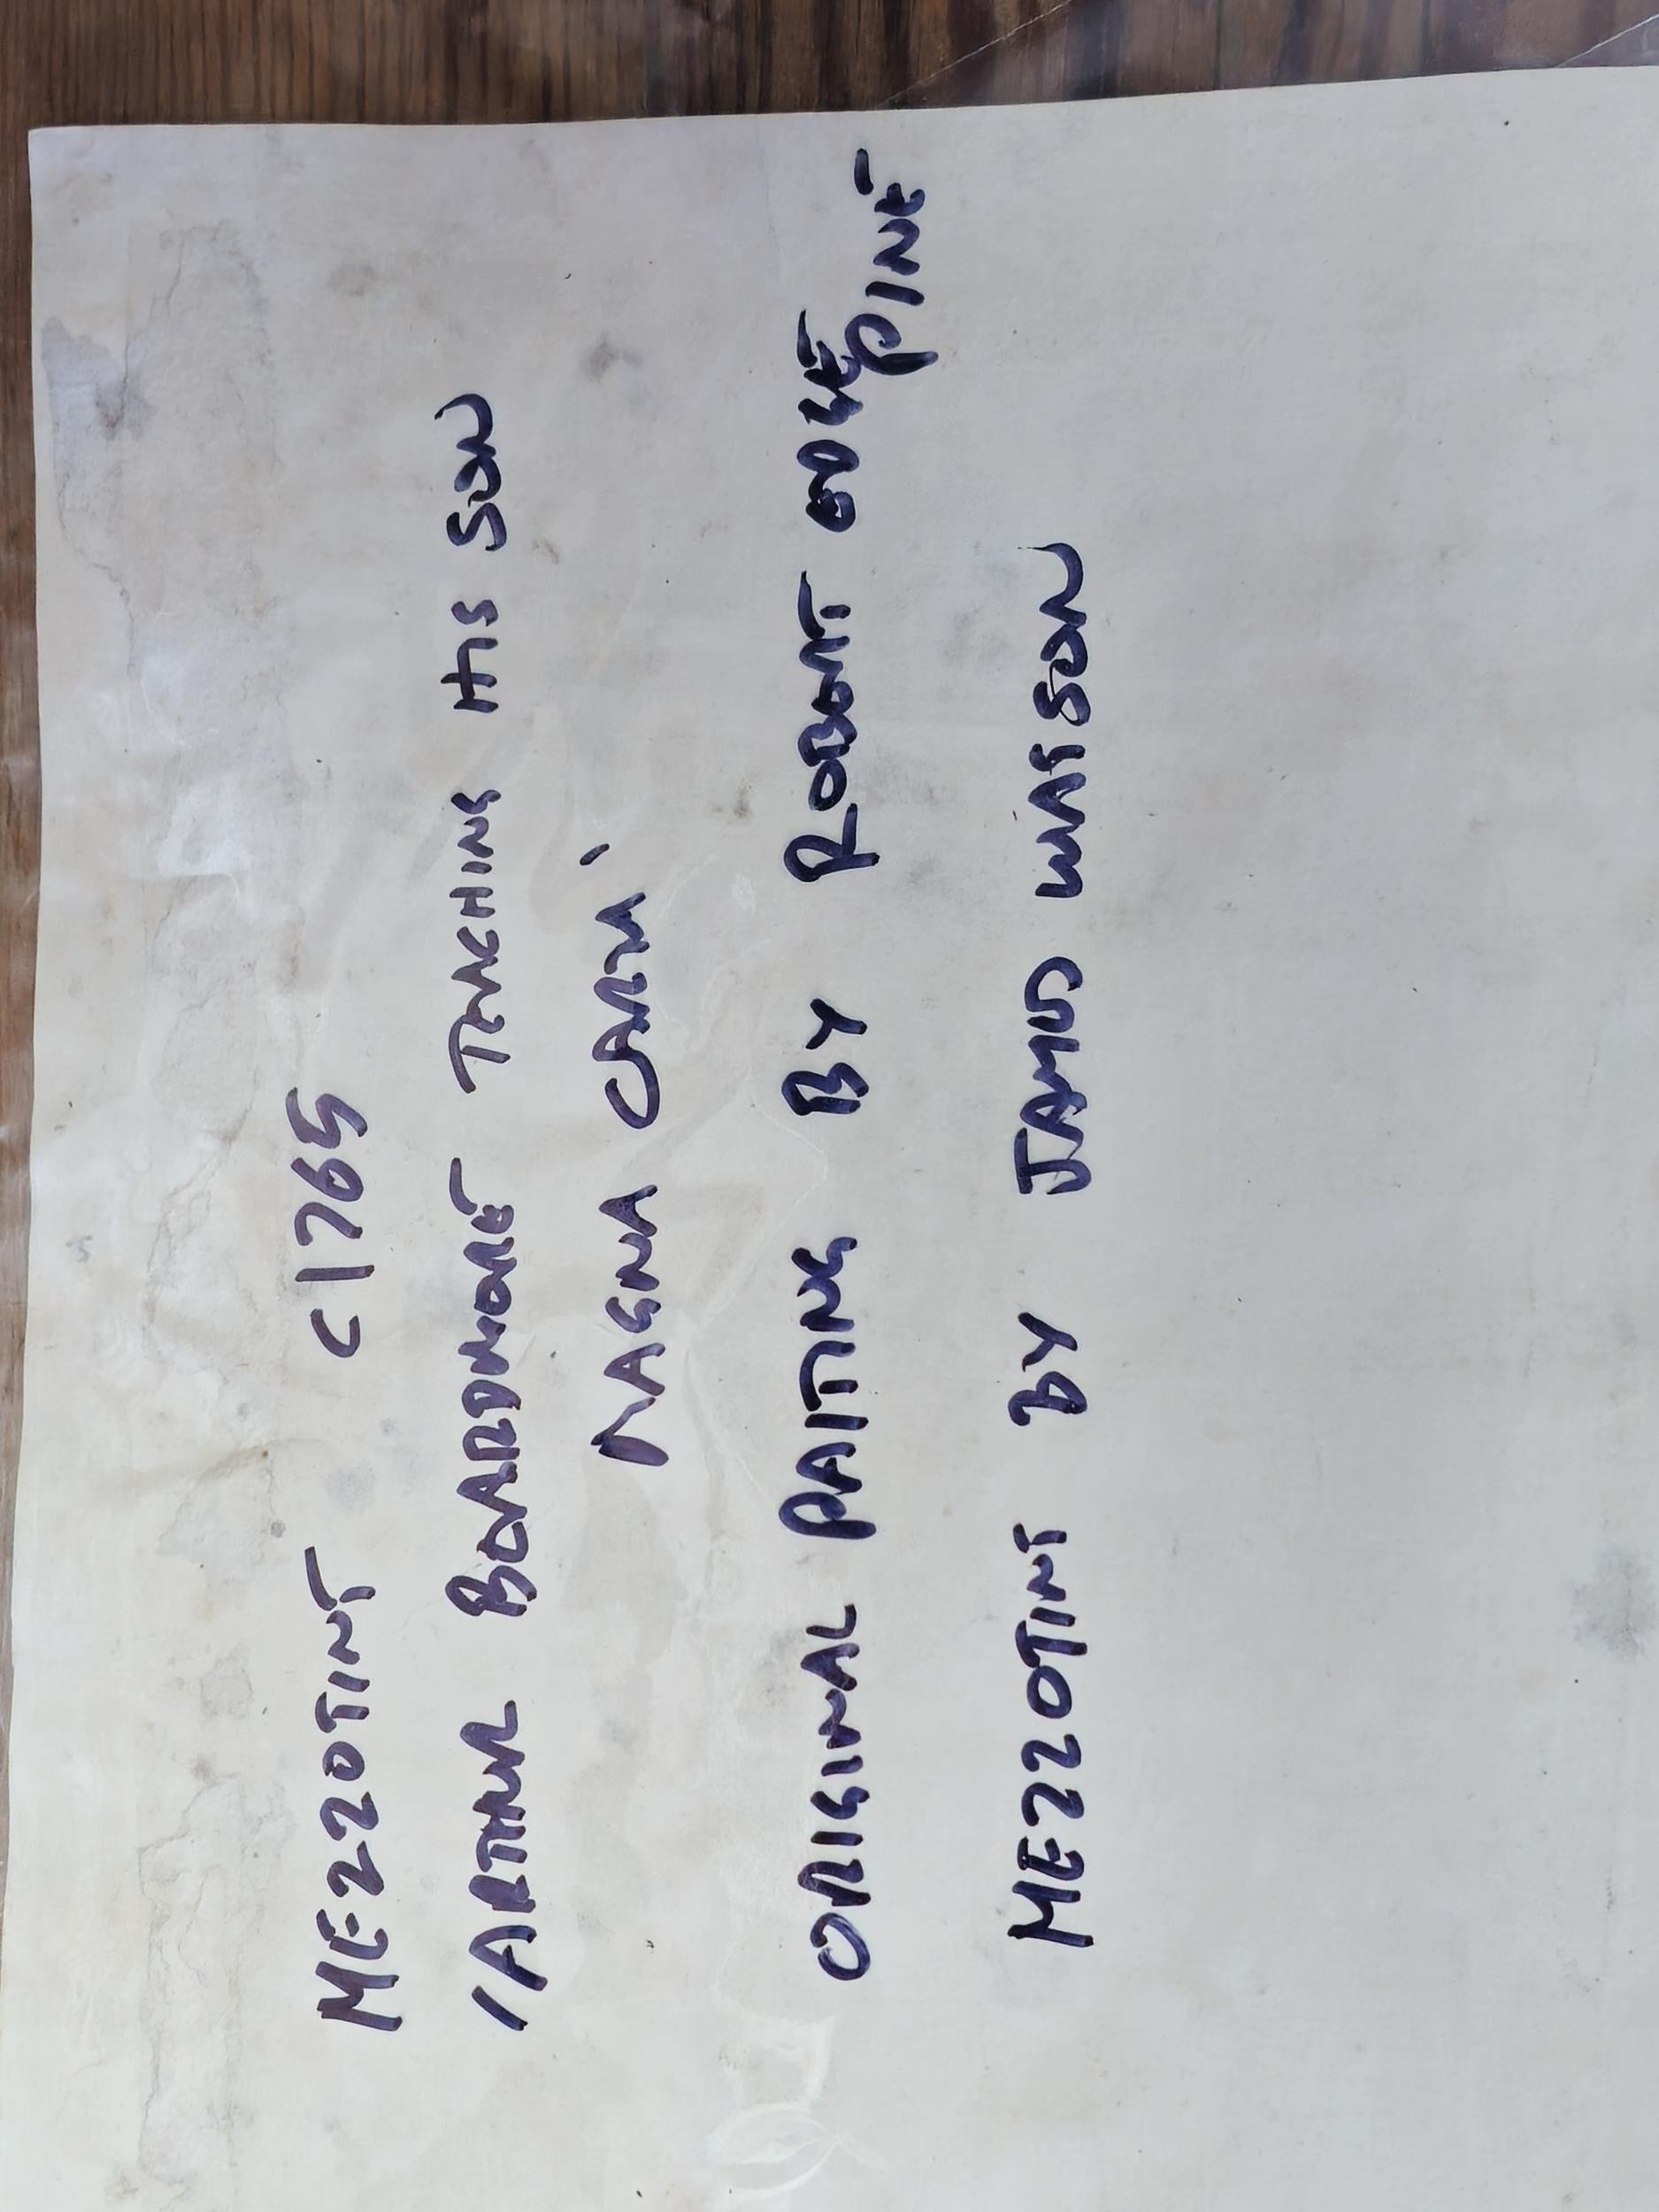 MEZZOTINT C1765
'ARTHUR BOARDMORE TEACHING HIS SON
MAGNA CARTA'
ORIGINAL PAITING BY ROBERT EDGE
PINE
MEZZOTINT BY JAMES WATSON